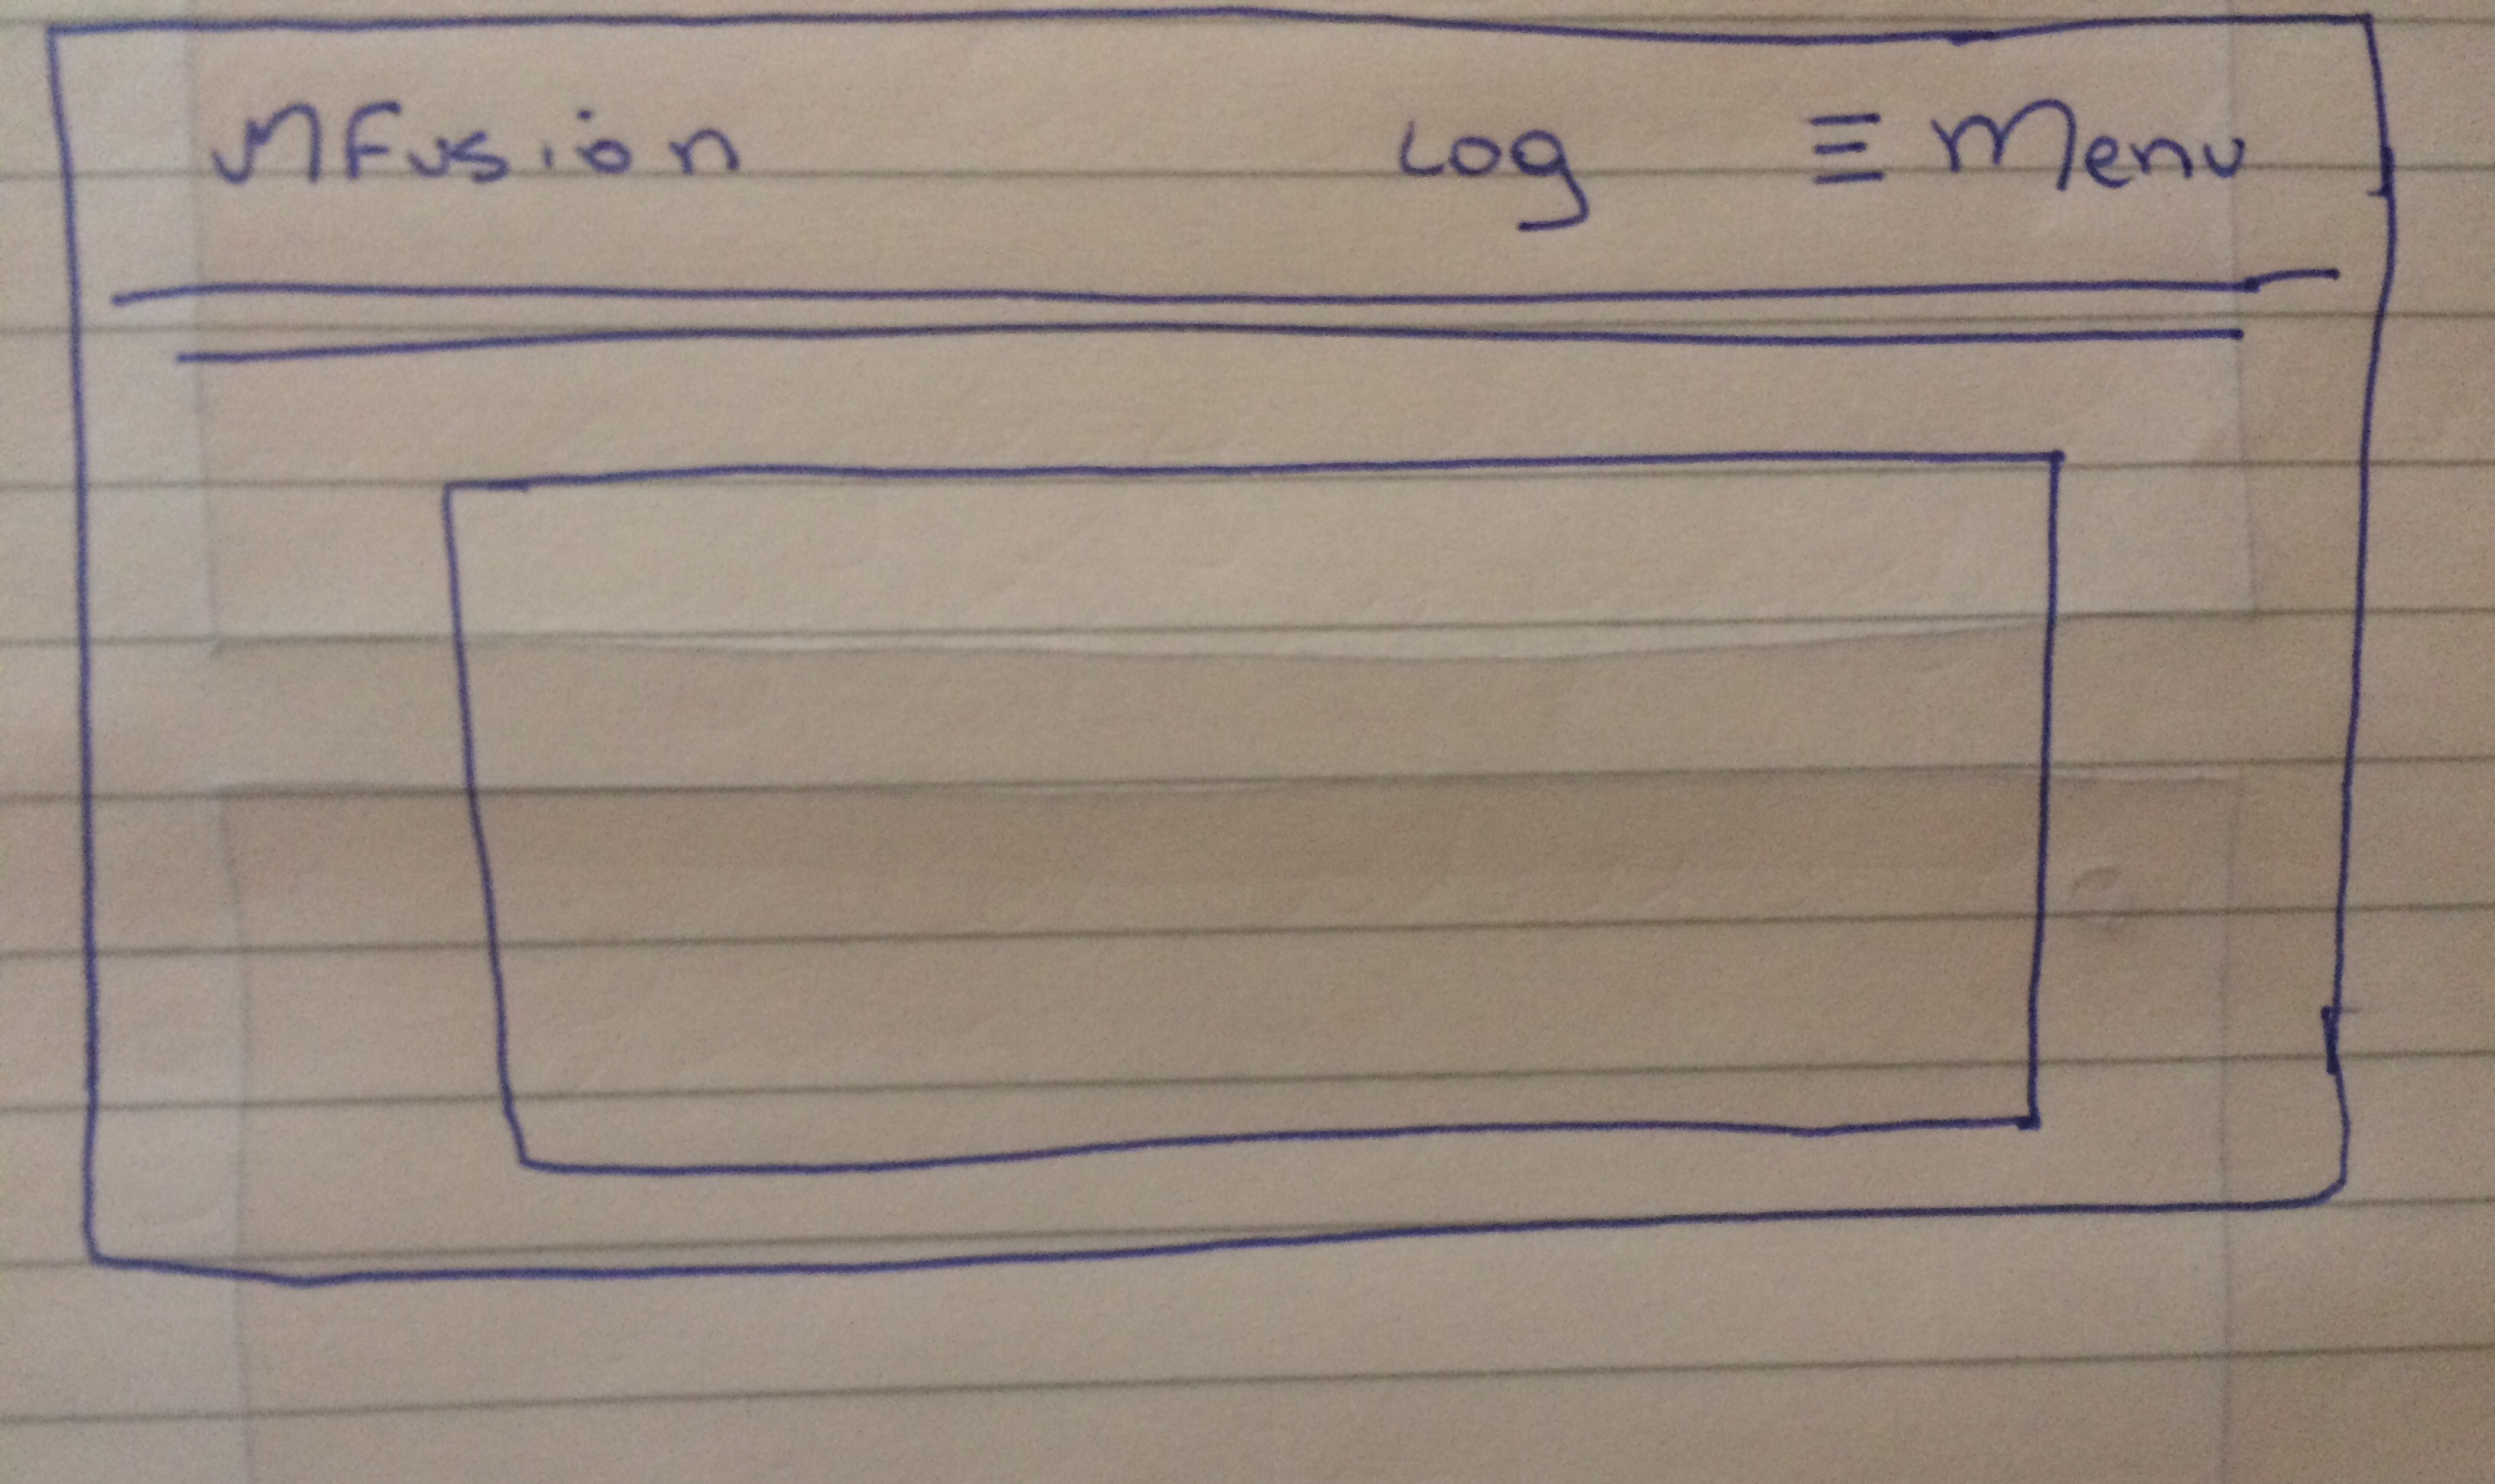 MFusion Log ≡ Menu